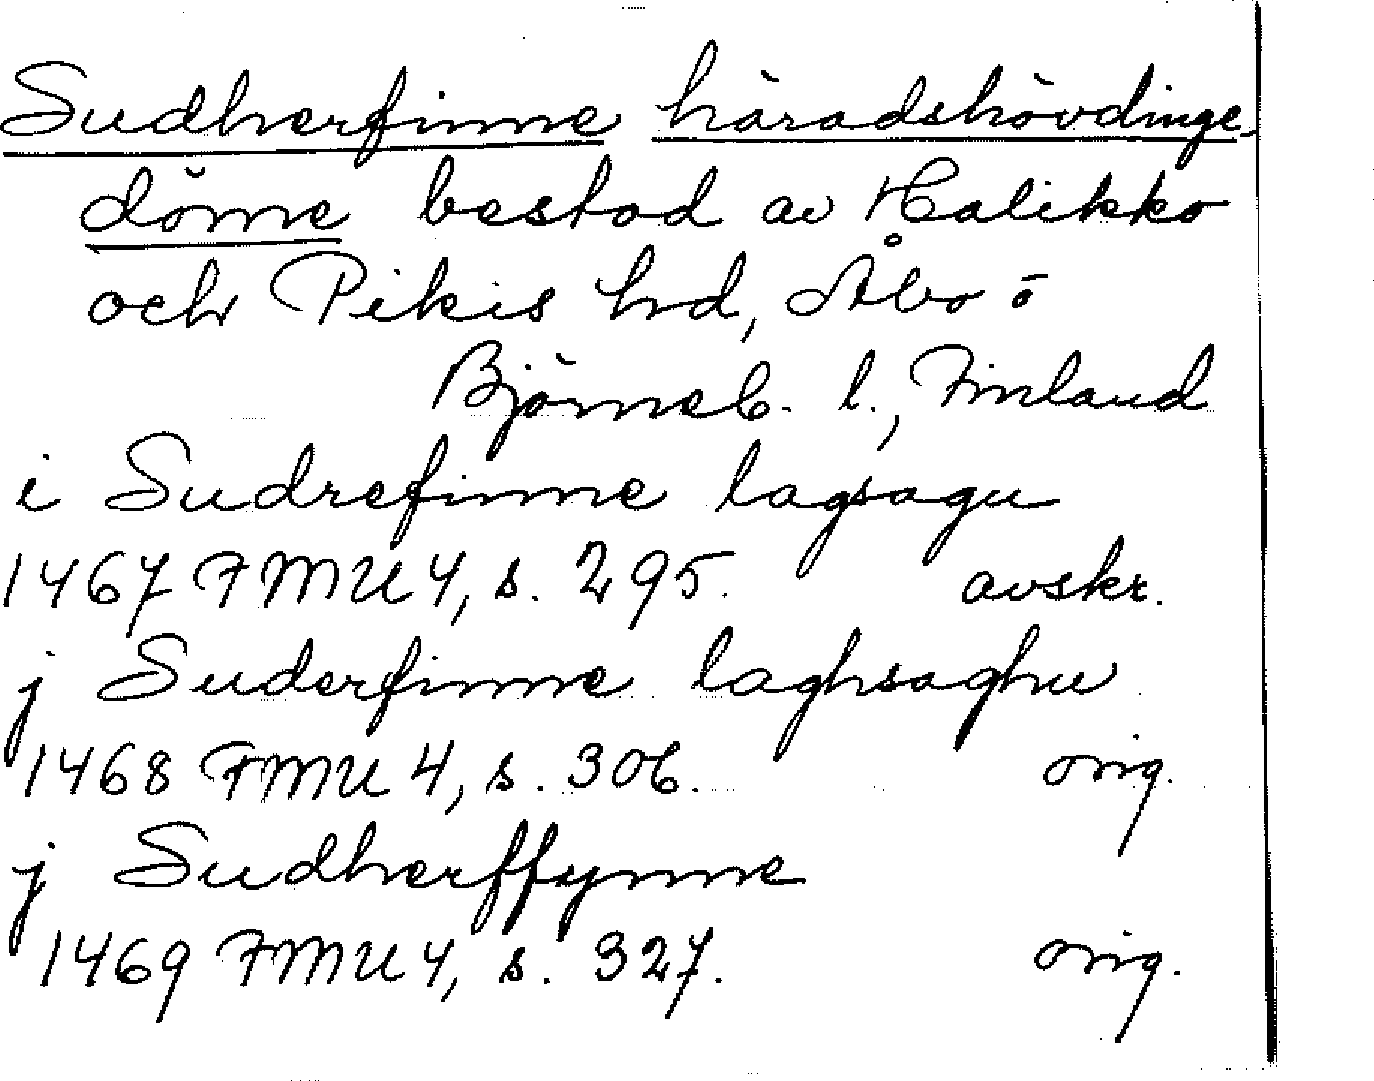 Sudherfinne häradshövdinge-
döme bestod av Halikko
och Pikis hd, Åbo ō
Björneb. l., Finland
i Sudrefinne lagsagu
1467 FMU 4, s. 295. avskr.
j Suderfinne laghsaghu
1468 FMU 4, s. 306. orig.
j Sudherffynne
1469 FMU 4, s. 327. orig.